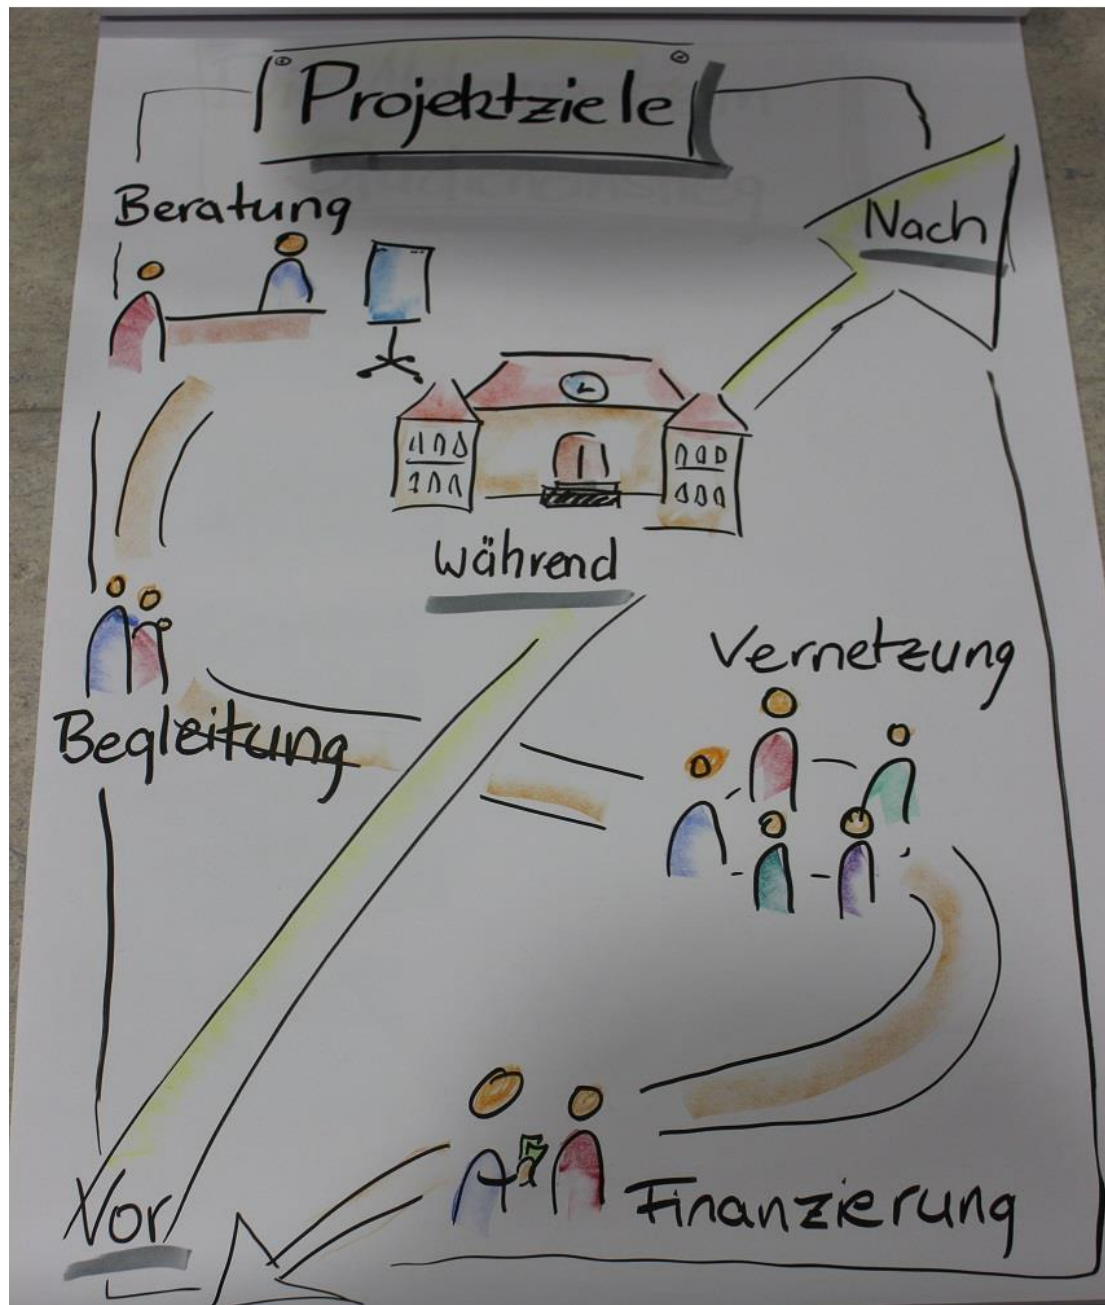 Projektziele
Beratung
Nach
Während
Vernetzung
Begleitung
Finanzierung
Vor